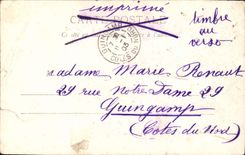 imprimé
CARTE POSTALE
timbre
au
verso
GUINGAMP
Madame Marie Renaut
29 rue Notre Dame 29
Guingamp
(Cotes du Nord)